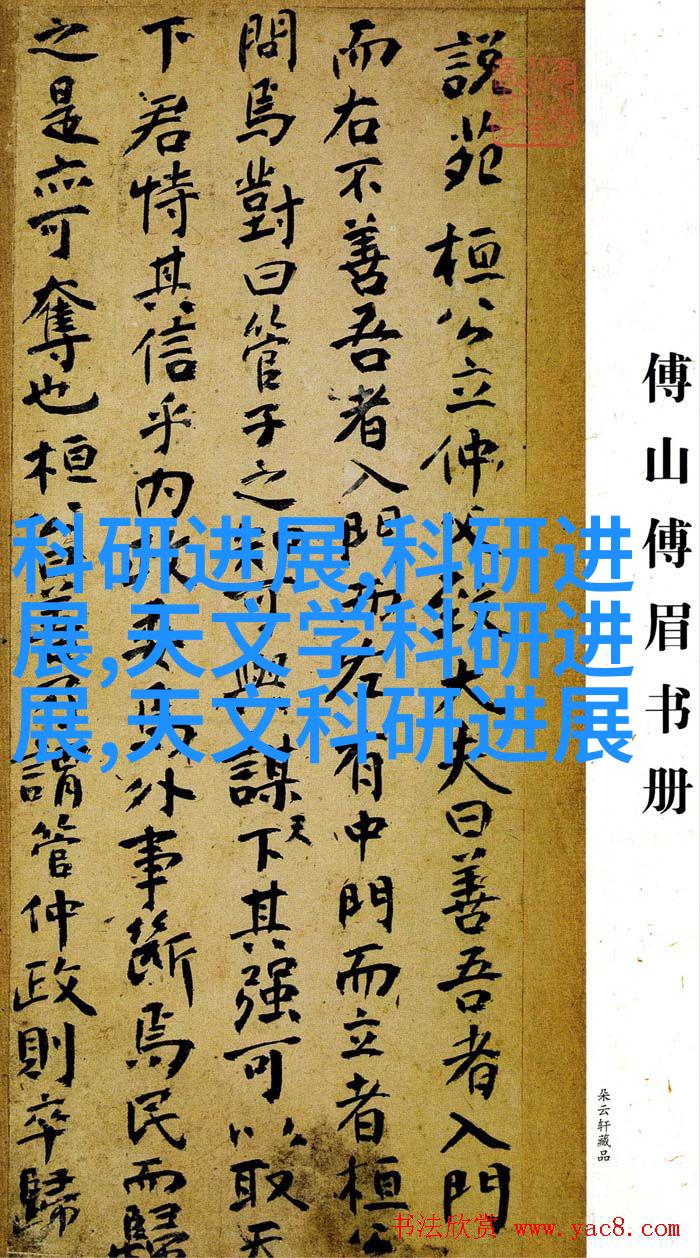 傅山傅眉书册
朵云轩藏品
説苑 桓公立仲父致大夫曰善吾者入門
而右不善吾者入門有中門而立者桓公
問焉對曰管子之可與謀天下其强可以取天
下君恃其信乎内政委焉外事斷焉民而歸
之是亦可奪也桓謂管仲政則卒歸
科研进展,科研进
展,天文学科研进
展,天文科研进展
书法欣赏 www.yac8.com